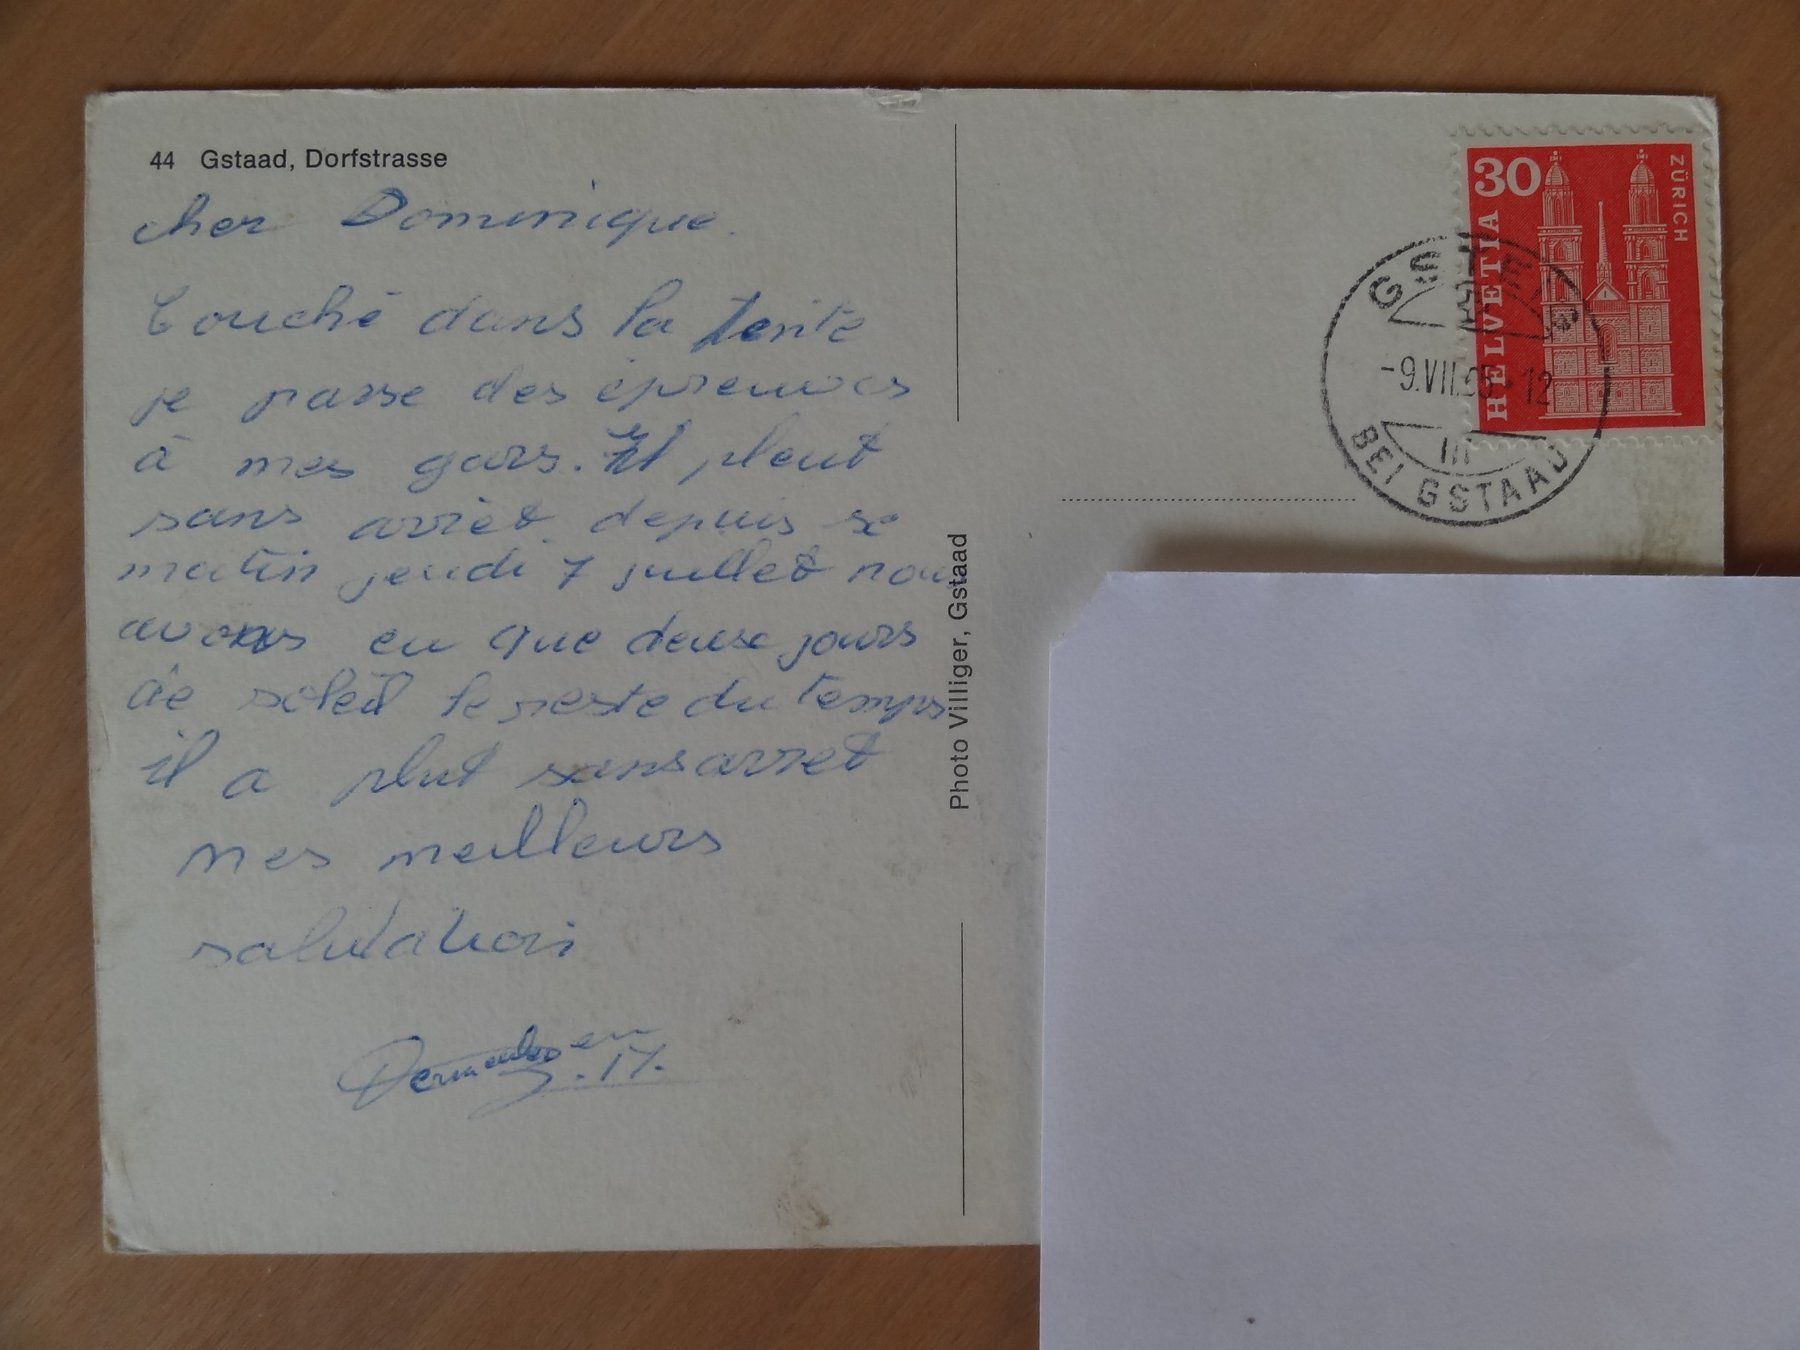 44 Gstaad, Dorfstrasse
cher Dominique.
Couché dans la tente
je passe des épreuves
à mes gars. Il pleut
sans arrèt depuis se
matin jeudi 7 juillet nou
avons eu que deux jours
de soleil le reste du temps
il a plut sans arret
mes meilleurs
salutation
Photo Villiger, Gstaad
30
HELVETIA
ZÜRICH
GSTEIG
-9.VII. -12
BEI GSTAAD